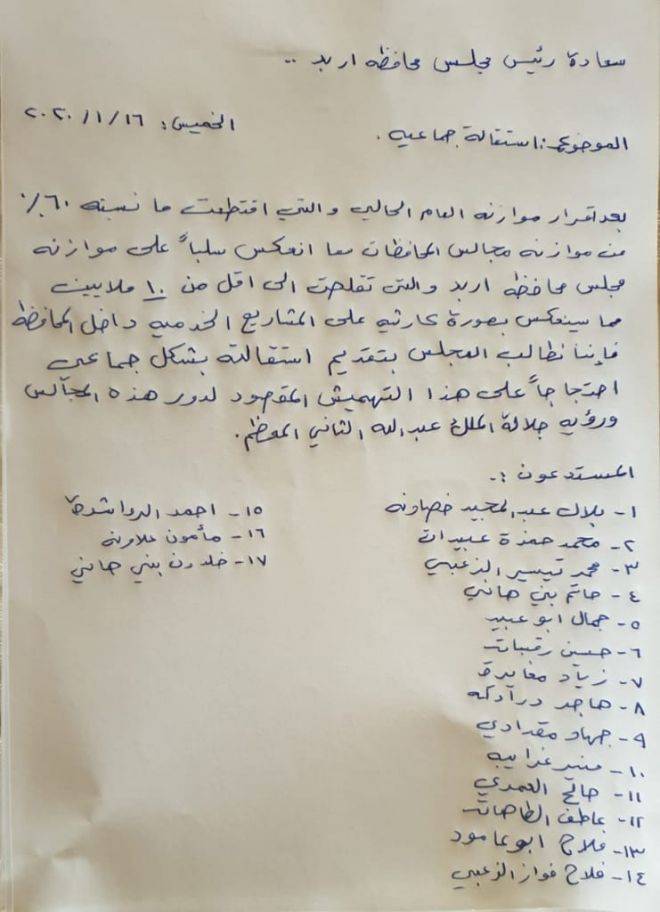 سعادة رئيس مجلس محافظه اربد ..
الخميس: ١٦/١/٢٠٢٠
الموضوع: استقالة جماعيه.
بعد اقرار موازنه العام الحالي والتي اقتطعت ما نسبته ٦٠٪
من موازنه مجالس المحافظات مما انعكس سلباً على موازنه
مجلس محافظه اربد والتي تقلصت الى اقل من ١٠ ملايين
مما سينعكس بصورة كارثيه على المشاريع الخدميه داخل المحافظه
فإننا نطالب المجلس بتقديم استقالته بشكل جماعي
احتجاجاً على هذا التهميش المقصود لدور هذه المجالس
ورؤيه جلالة الملك عبدالله الثاني المعظم.
المستدعون :-
١- بلال عبدالمجيد خصاونه
٢- محمد حمزة عبيدات
٣- محمد تيسير الزعبي
٤- حاتم بني هاني
٥- جمال ابو عبيد
٦- حسين رقيبات
٧- زياد مغايرة
٨- هاجد درادكه
٩- جهاد مقدادي
١٠- منير غرايبه
١١- صالح العمري
١٢- عاطف الطاهات
١٣- فلاح ابو عامود
١٤- فلاح فواز الزعبي
١٥- احمد الرواشدة
١٦- مأمون علاونة
١٧- خلدون بني هاني